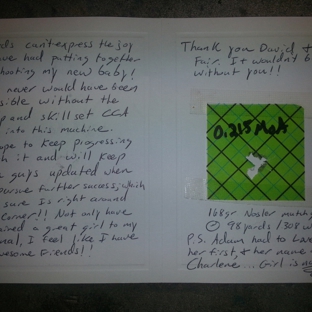 can't express the joy
have had putting together
shooting my new baby!
never would have been
without the
and skill set CGA
into this machine.
to keep progressing
with it and will keep
guys updated when
pursue further success, which
sure is right around
corner!! Not only have
a great girl to my
I feel like I have
awesome friends!!
Thank you David &
Fair. It wouldn't b
without you!!
0.215 MOA
168gr Nosler match
@ 98 yards / 308 w
P.S. Adam had to
her first, & her name
Charlene... Girl is